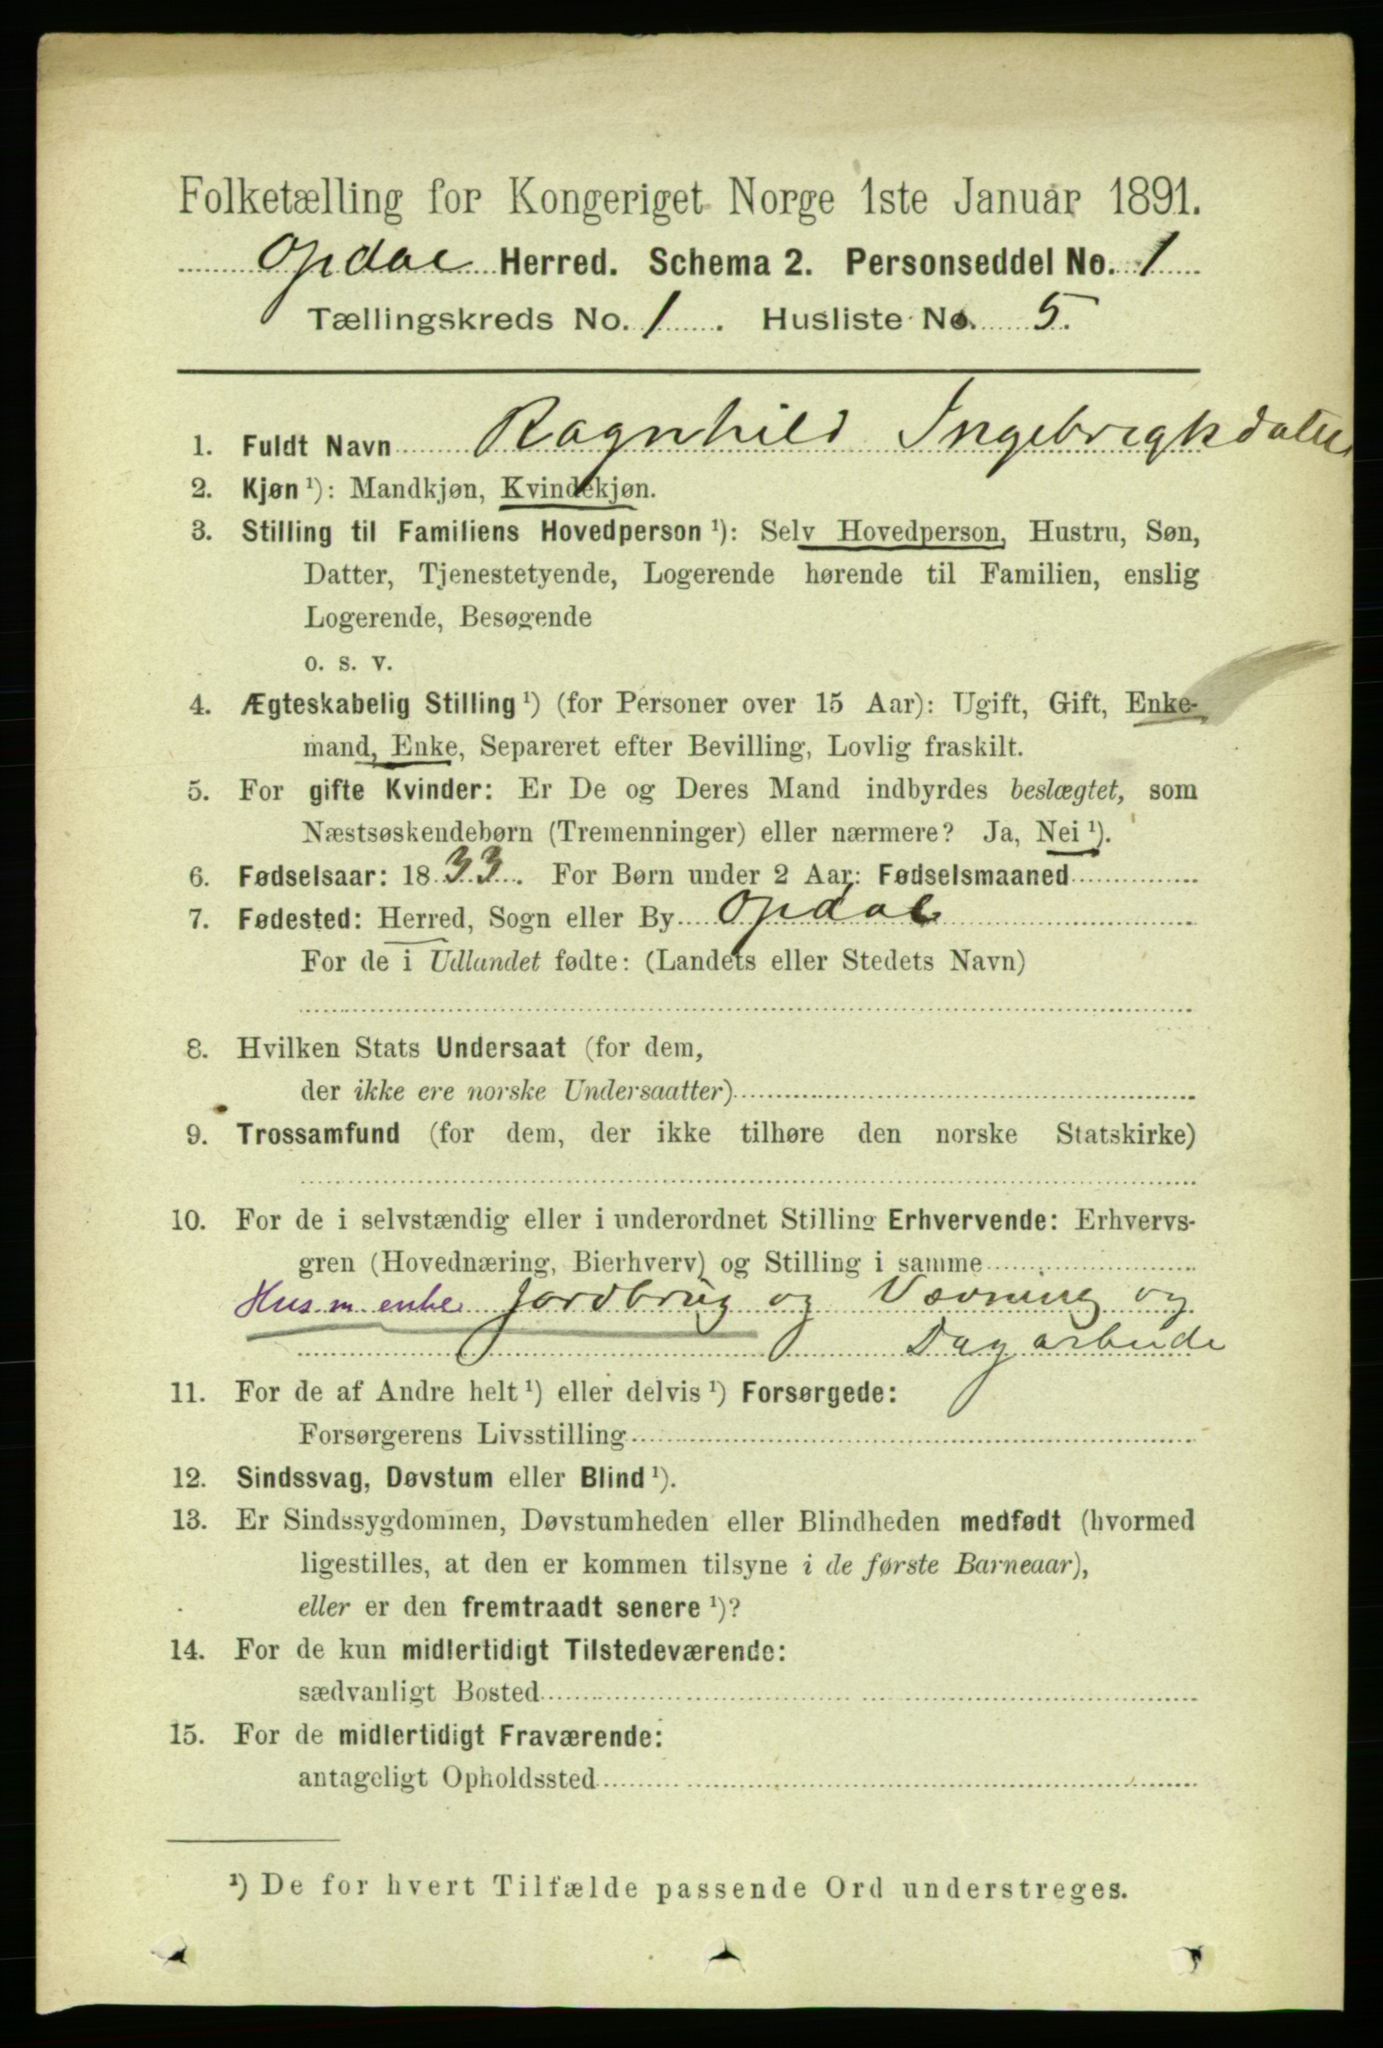 Folketælling for Kongeriget Norge 1ste Januar 1891.
Opdal Herred. Schema 2. Personseddel No. 1
Tællingskreds No. 1. Husliste No. 5.
1. Fuldt Navn Ragnhild Ingebrigtsdatter
2. Kjøn ¹): Mandkjøn, Kvindekjøn.
3. Stilling til Familiens Hovedperson ¹): Selv Hovedperson, Hustru, Søn,
Datter, Tjenestetyende, Logerende hørende til Familien, enslig
Logerende, Besøgende
o. s. v.
4. Ægteskabelig Stilling ¹) (for Personer over 15 Aar): Ugift, Gift, Enke-
mand, Enke, Separeret efter Bevilling, Lovlig fraskilt.
5. For gifte Kvinder: Er De og Deres Mand indbyrdes beslægtet, som
Næstsøskendebørn (Tremenninger) eller nærmere? Ja, Nei ¹).
6. Fødselsaar: 1833. For Børn under 2 Aar: Fødselsmaaned
7. Fødested: Herred, Sogn eller By Opdal
For de i Udlandet fødte: (Landets eller Stedets Navn)
8. Hvilken Stats Undersaat (for dem,
der ikke ere norske Undersaatter)
9. Trossamfund (for dem, der ikke tilhøre den norske Statskirke)
10. For de i selvstændig eller i underordnet Stilling Erhvervende: Erhvervs-
gren (Hovednæring, Bierhverv) og Stilling i samme
Husm.enke Jordbrug og Vævning og
Dagarbeide
11. For de af Andre helt ¹) eller delvis ¹) Forsørgede:
Forsørgerens Livsstilling
12. Sindssvag, Døvstum eller Blind ¹).
13. Er Sindssygdommen, Døvstumheden eller Blindheden medfødt (hvormed
ligestilles, at den er kommen tilsyne i de første Barneaar),
eller er den fremtraadt senere ¹)?
14. For de kun midlertidigt Tilstedeværende:
sædvanligt Bosted
15. For de midlertidigt Fraværende:
antageligt Opholdssted
¹) De for hvert Tilfælde passende Ord understreges.